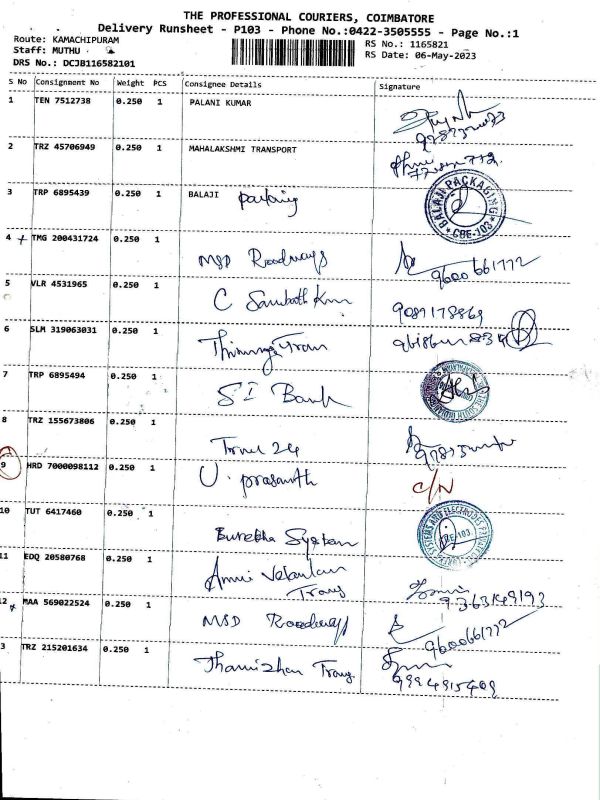 THE PROFESSIONAL COURIERS, COIMBATORE
Delivery Runsheet - P103 - Phone No.:0422-3505555 - Page No.:1
Route: KAMACHIPURAM RS No.: 1165821
Staff: MUTHU RS Date: 06-May-2023
DRS No.: DCJB116582101
S No Consignment No Weight PCS Consignee Details Signature
1 TEN 7512738 0.250 1 PALANI KUMAR
2 TRZ 45706949 0.250 1 MAHALAKSHMI TRANSPORT
3 TRP 6895439 0.250 1 BALAJI BALAJI PACKAGING CBE-103
4 TMG 200431724 0.250 1 MSD Roadways 9600661772
5 VLR 4531965 0.250 1 C Sambath Kum
6 SLM 319063031 0.250 1
7 TRP 6895494 0.250 1 SI Bank
8 TRZ 155673806 0.250 1 24
9 HRD 7000098112 0.250 1 U. prasanth C/N
10 TUT 6417460 0.250 1 Eurekha System
11 EDQ 20580768 0.250 1 Velavan Trans 9363149193
12 MAA 569022524 0.250 1 MSD Roadways 9600661772
3 TRZ 215201634 0.250 1 Thamizhan Trans 9994915409